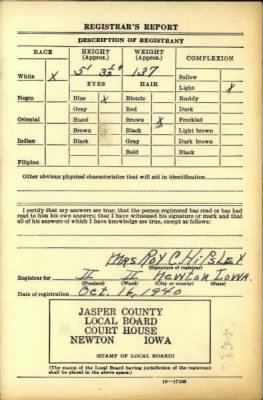 REGISTRAR'S REPORT
DESCRIPTION OF REGISTRANT
RACE HEIGHT (Approx.) WEIGHT (Approx.) COMPLEXION
White X 5' 137 Sallow
EYES HAIR Light X
Negro Blue X Blonde Ruddy
Gray Red Dark
Oriental Hazel Brown X Freckled
Brown Black Light brown
Indian Black Gray Dark brown
Bald Black
Filipino
Other obvious physical characteristics that will aid in identification
I certify that my answers are true; that the person registered has read or has had
read to him his own answers; that I have witnessed his signature or mark and that
all of his answers of which I have knowledge are true, except as follows:
Mrs Roy C. Hipsley
(Signature of registrar)
Registrar for II II Newton Iowa.
(Precinct) (Ward) (City or county) (State)
Date of registration Oct. 16, 1940
JASPER COUNTY
LOCAL BOARD
COURT HOUSE
NEWTON IOWA
(STAMP OF LOCAL BOARD)
(The stamp of the Local Board having jurisdiction of the registrant
shall be placed in the above space.)
16-17105